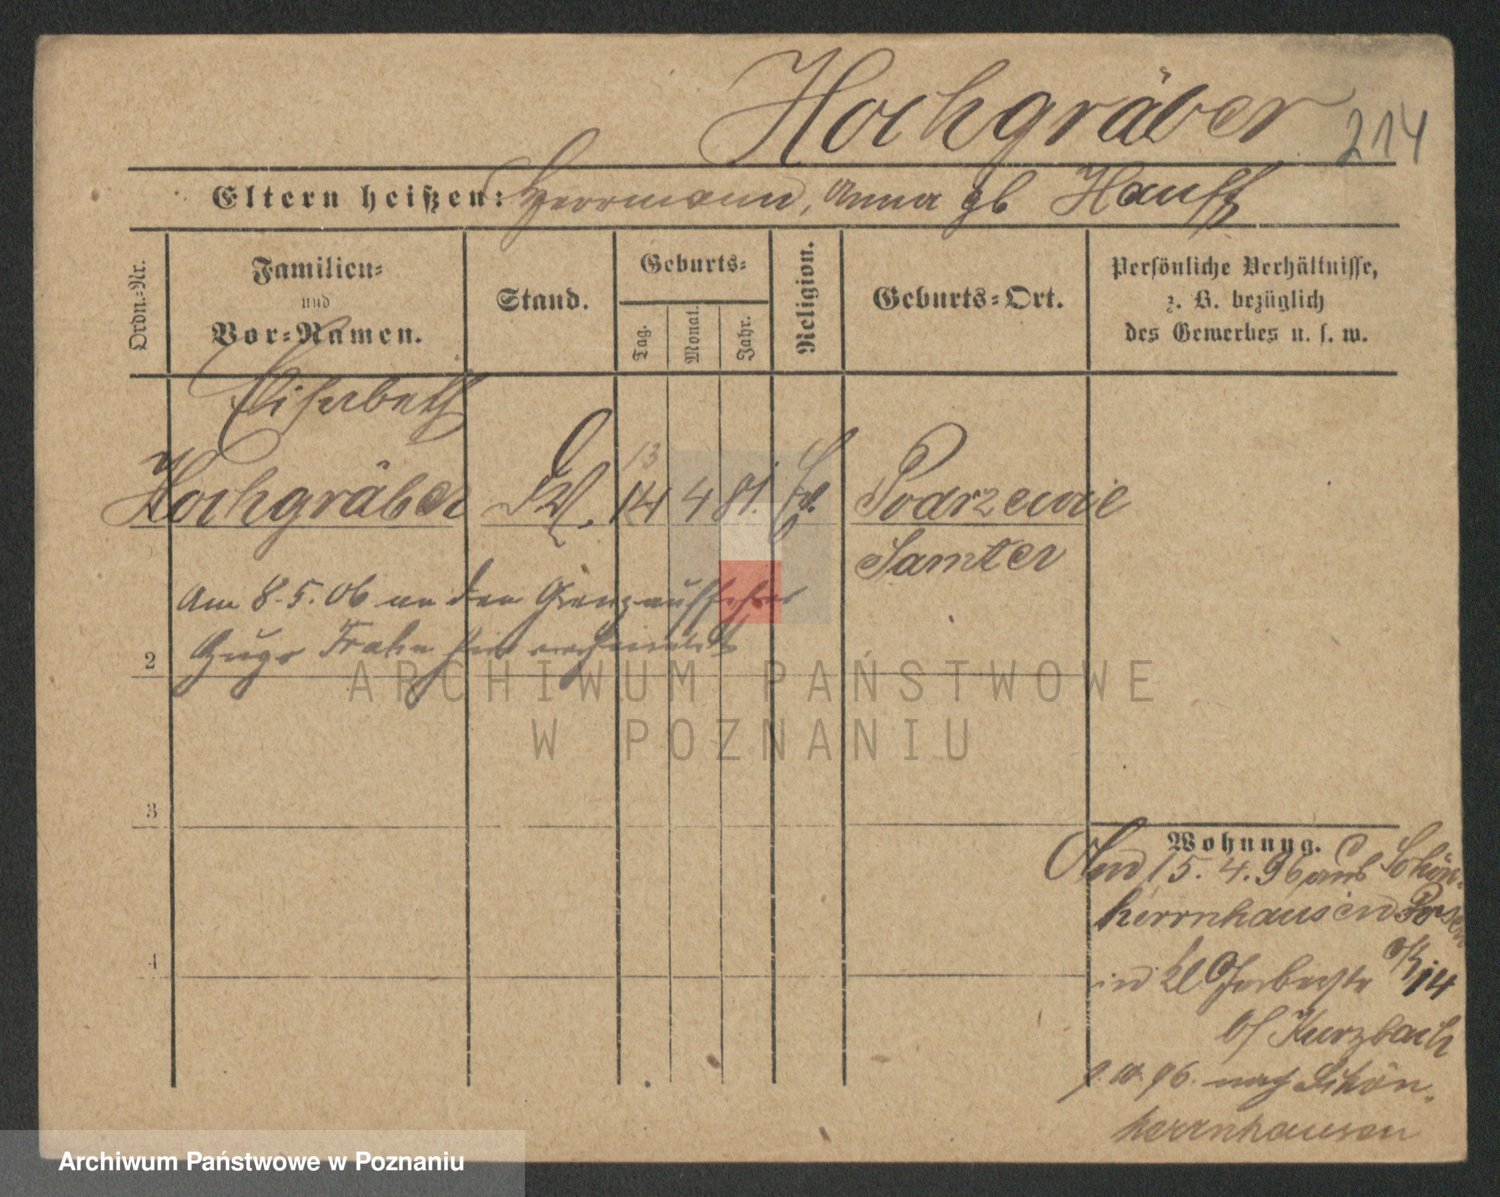 Hochgräber 214
Eltern heißen: Herrmann, Anna gb Hauff
Ordn.-Nr.
Familien-
und
Vor-Namen.
Stand.
Geburts-
Tag.
Monat.
Jahr.
Religion.
Geburts-Ort.
Persönliche Verhältnisse,
z. B. bezüglich
des Gewerbes u. s. w.
Elisabeth
13
Hochgräber 14 4 81. Podrzewie
Samter
Am 8.5.06 an den Grenzaufseher
2 Hugo Frahn hier
3
4
Wohnung.
15. 4. 96 aus Schön-
herrnhausen Posen
in 14
bf Kurzbach
96 nach Schön-
herrnhausen
ARCHIWUM PAŃSTWOWE
W POZNANIU
Archiwum Państwowe w Poznaniu